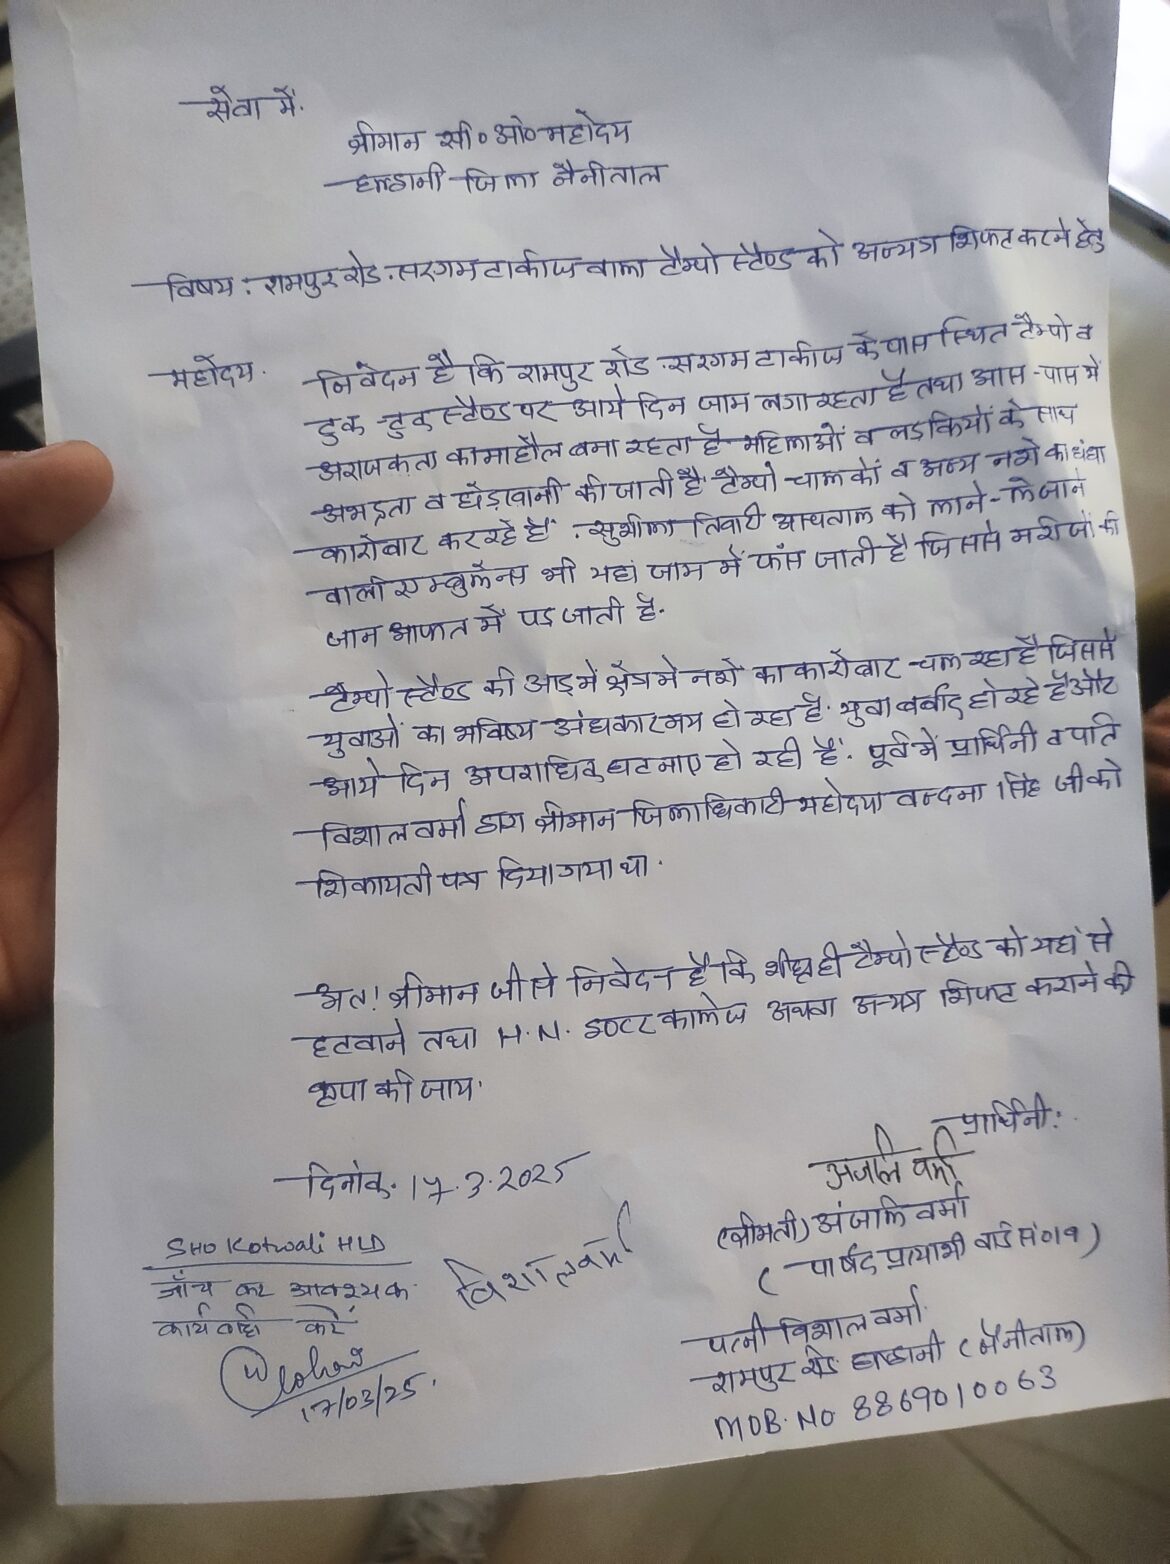 सेवा में.
श्रीमान सी० ओ० महोदय
हल्द्वानी जिला नैनीताल
विषय: रामपुर रोड. सरगम टाकीज वाला टैम्पो स्टैण्ड को अन्यत्र शिफ्ट करने हेतु
महोदय.
निवेदन है कि रामपुर रोड सरगम टाकीज के पास स्थित टैम्पो व
टुक-टुक स्टैण्ड पर आये दिन जाम लगा रहता है तथा आस-पास में
अराजकता का माहौल बना रहता है महिलाओं व लड़कियों के साथ
अभद्रता व छेड़खानी की जाती है टैम्पो चालकों व अन्य नशे का धंधा
कारोबार कर रहे हैं. सुशीला तिवारी अस्पताल को लाने-ले जाने
वाली एम्बुलेन्स भी यहां जाम में फंस जाती है जिससे मरीजों की
जान आफत में पड जाती है.
टैम्पो स्टैण्ड की आड़ में क्षेत्र मे नशे का कारोबार चल रहा है जिससे
युवाओं का भविष्य अंधकारमय हो रहा है. युवा बर्वाद हो रहे है और
आये दिन अपराधिक घटनाए हो रही हैं. पूर्व में प्रार्थिनी व पति
विशाल वर्मा द्वारा श्रीमान जिलाधिकारी महोदया वन्दना सिंह जी को
शिकायती पत्र दिया गया था.
अत! श्रीमान जी से निवेदन है कि शीघ्र ही टैम्पो स्टैण्ड को यहां से
हटवाने तथा H.N. इण्टर कालेज अथवा अन्यत्र शिफ्ट कराने की
कृपा की जाय.
प्रार्थिनी:
दिनांक. 17.3.2025
अंजलि वर्मा
(श्रीमती) अंजलि वर्मा
(पार्षद प्रत्याशी वार्ड सं० 19)
SHO Kotwali HLD
जाँच कर आवश्यक
कार्यवाही करें
17/03/25.
विशाल वर्मा
पत्नी विशाल वर्मा
रामपुर रोड हल्द्वानी (नैनीताल)
MOB. NO 8869010063